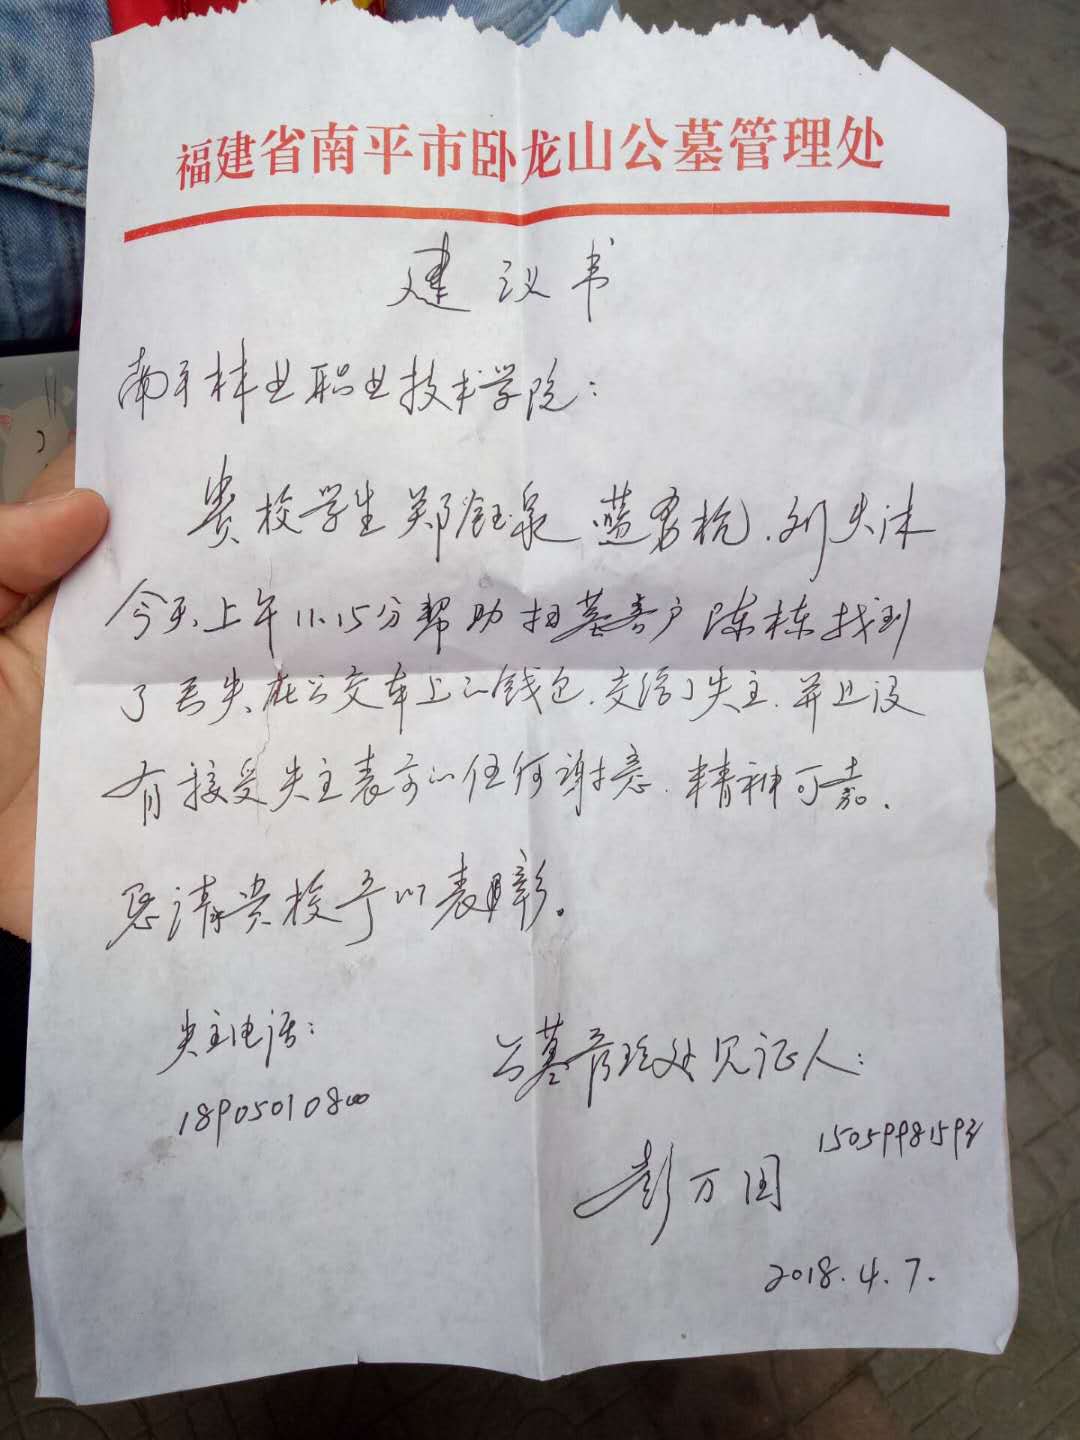 福建省南平市卧龙山公墓管理处
建议书
南平林业职业技术学院：
贵校学生郑钰泉 蓝君杭、刘失沫
今天上午11.15分帮助扫墓客户陈栋找到
了丢失在公交车上的钱包.交给了失主.并且没
有接受失主表示的任何谢意.精神可嘉.
恳请贵校予以表彰。
失主电话：
18905010800
公墓管理处见证人：
彭万国
2018.4.7.